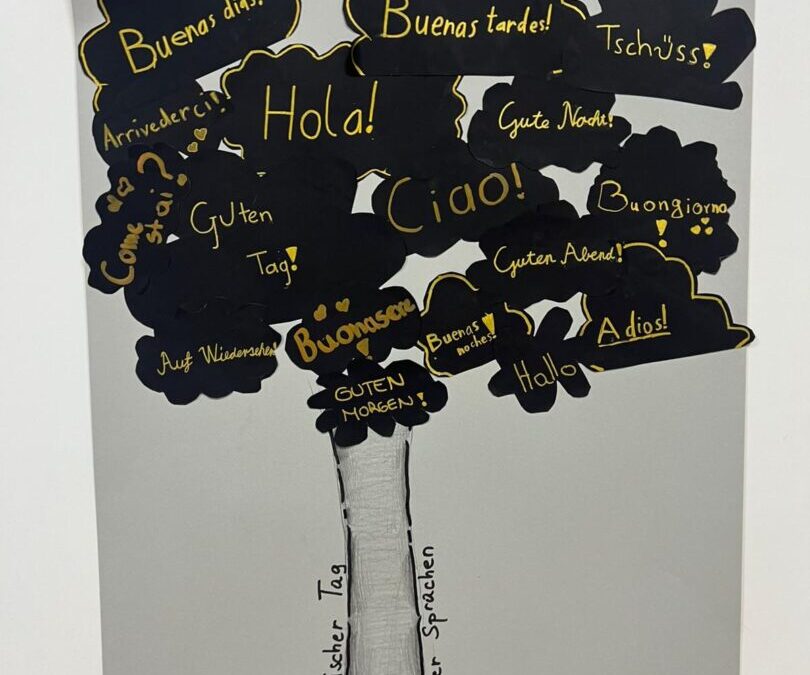 Buenas días!
Buenas tardes!
Tschüss!
Arrivederci!
Hola!
Gute Nacht!
Come
stai?
Guten
Tag!
Ciao!
Buongiorno
!
Guten Abend!
Auf Wiedersehen
Buonasera
!
Buenas
noches!
Adios!
Hallo
GUTEN
MORGEN!
ischer Tag
er Sprachen